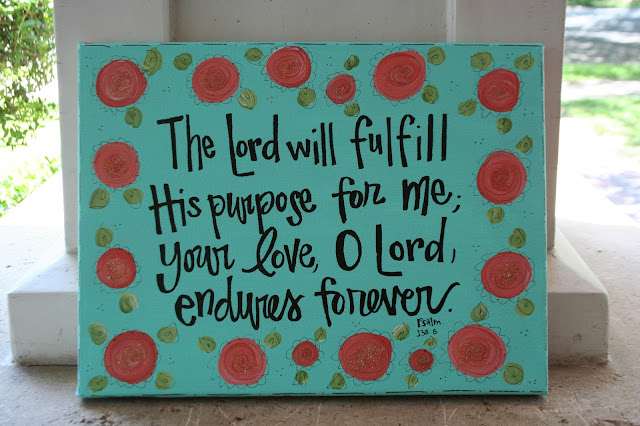 The Lord will fulfill
His purpose for me;
your love, O Lord,
endures forever.
Psalm
138:8